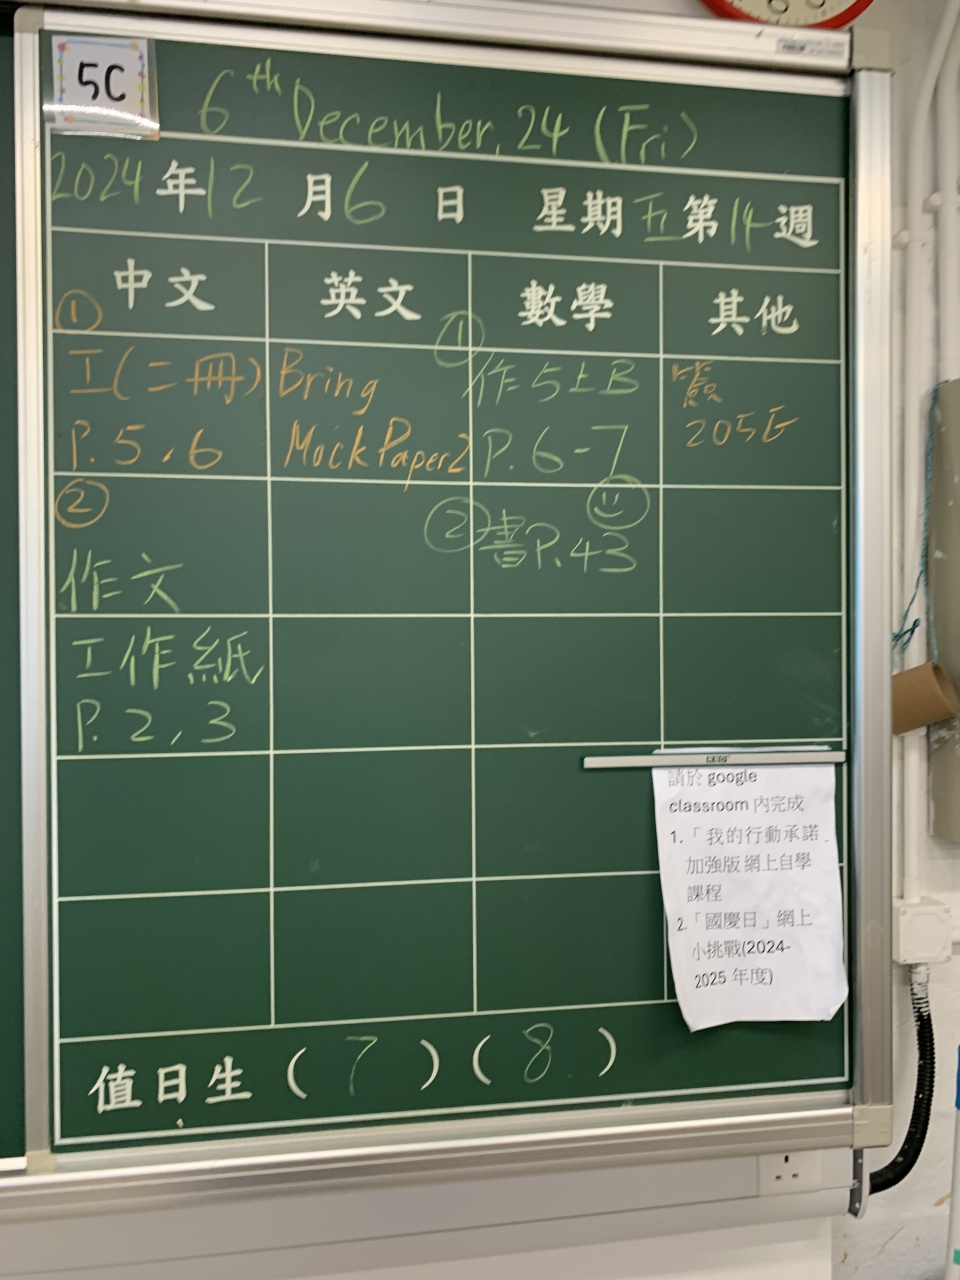 5C
6th December, 24 (Fri)
2024年12月6日 星期五第14週
中文 英文 數學 其他
①
工(二冊)
P.5,6
②
作文
工作紙
P.2,3
Bring
Mock Paper2
①
作5上B
P.6-7
②
書P.43
205E
請於 google
classroom 內完成
1.「我的行動承諾
加強版 網上自學
課程
2.「國慶日」網上
小挑戰(2024-
2025 年度)
值日生 (7)(8)